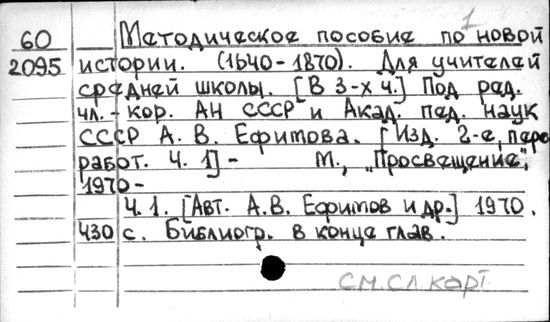 1
60 Методическое пособие по новой
2095 истории. (1640-1870). Для учителей
средней школы. [В 3-х ч.] Под ред.
чл.-кор. АН СССР и Акад. пед. наук
СССР А. В. Ефимова. [Изд. 2-е, пере
работ. Ч. 1] - М., „Просвещение",
1970-
Ч. 1. [Авт. А.В. Ефимов и др.] 1970.
430 с. Библиогр. в конце глав.
см. сл. карт.